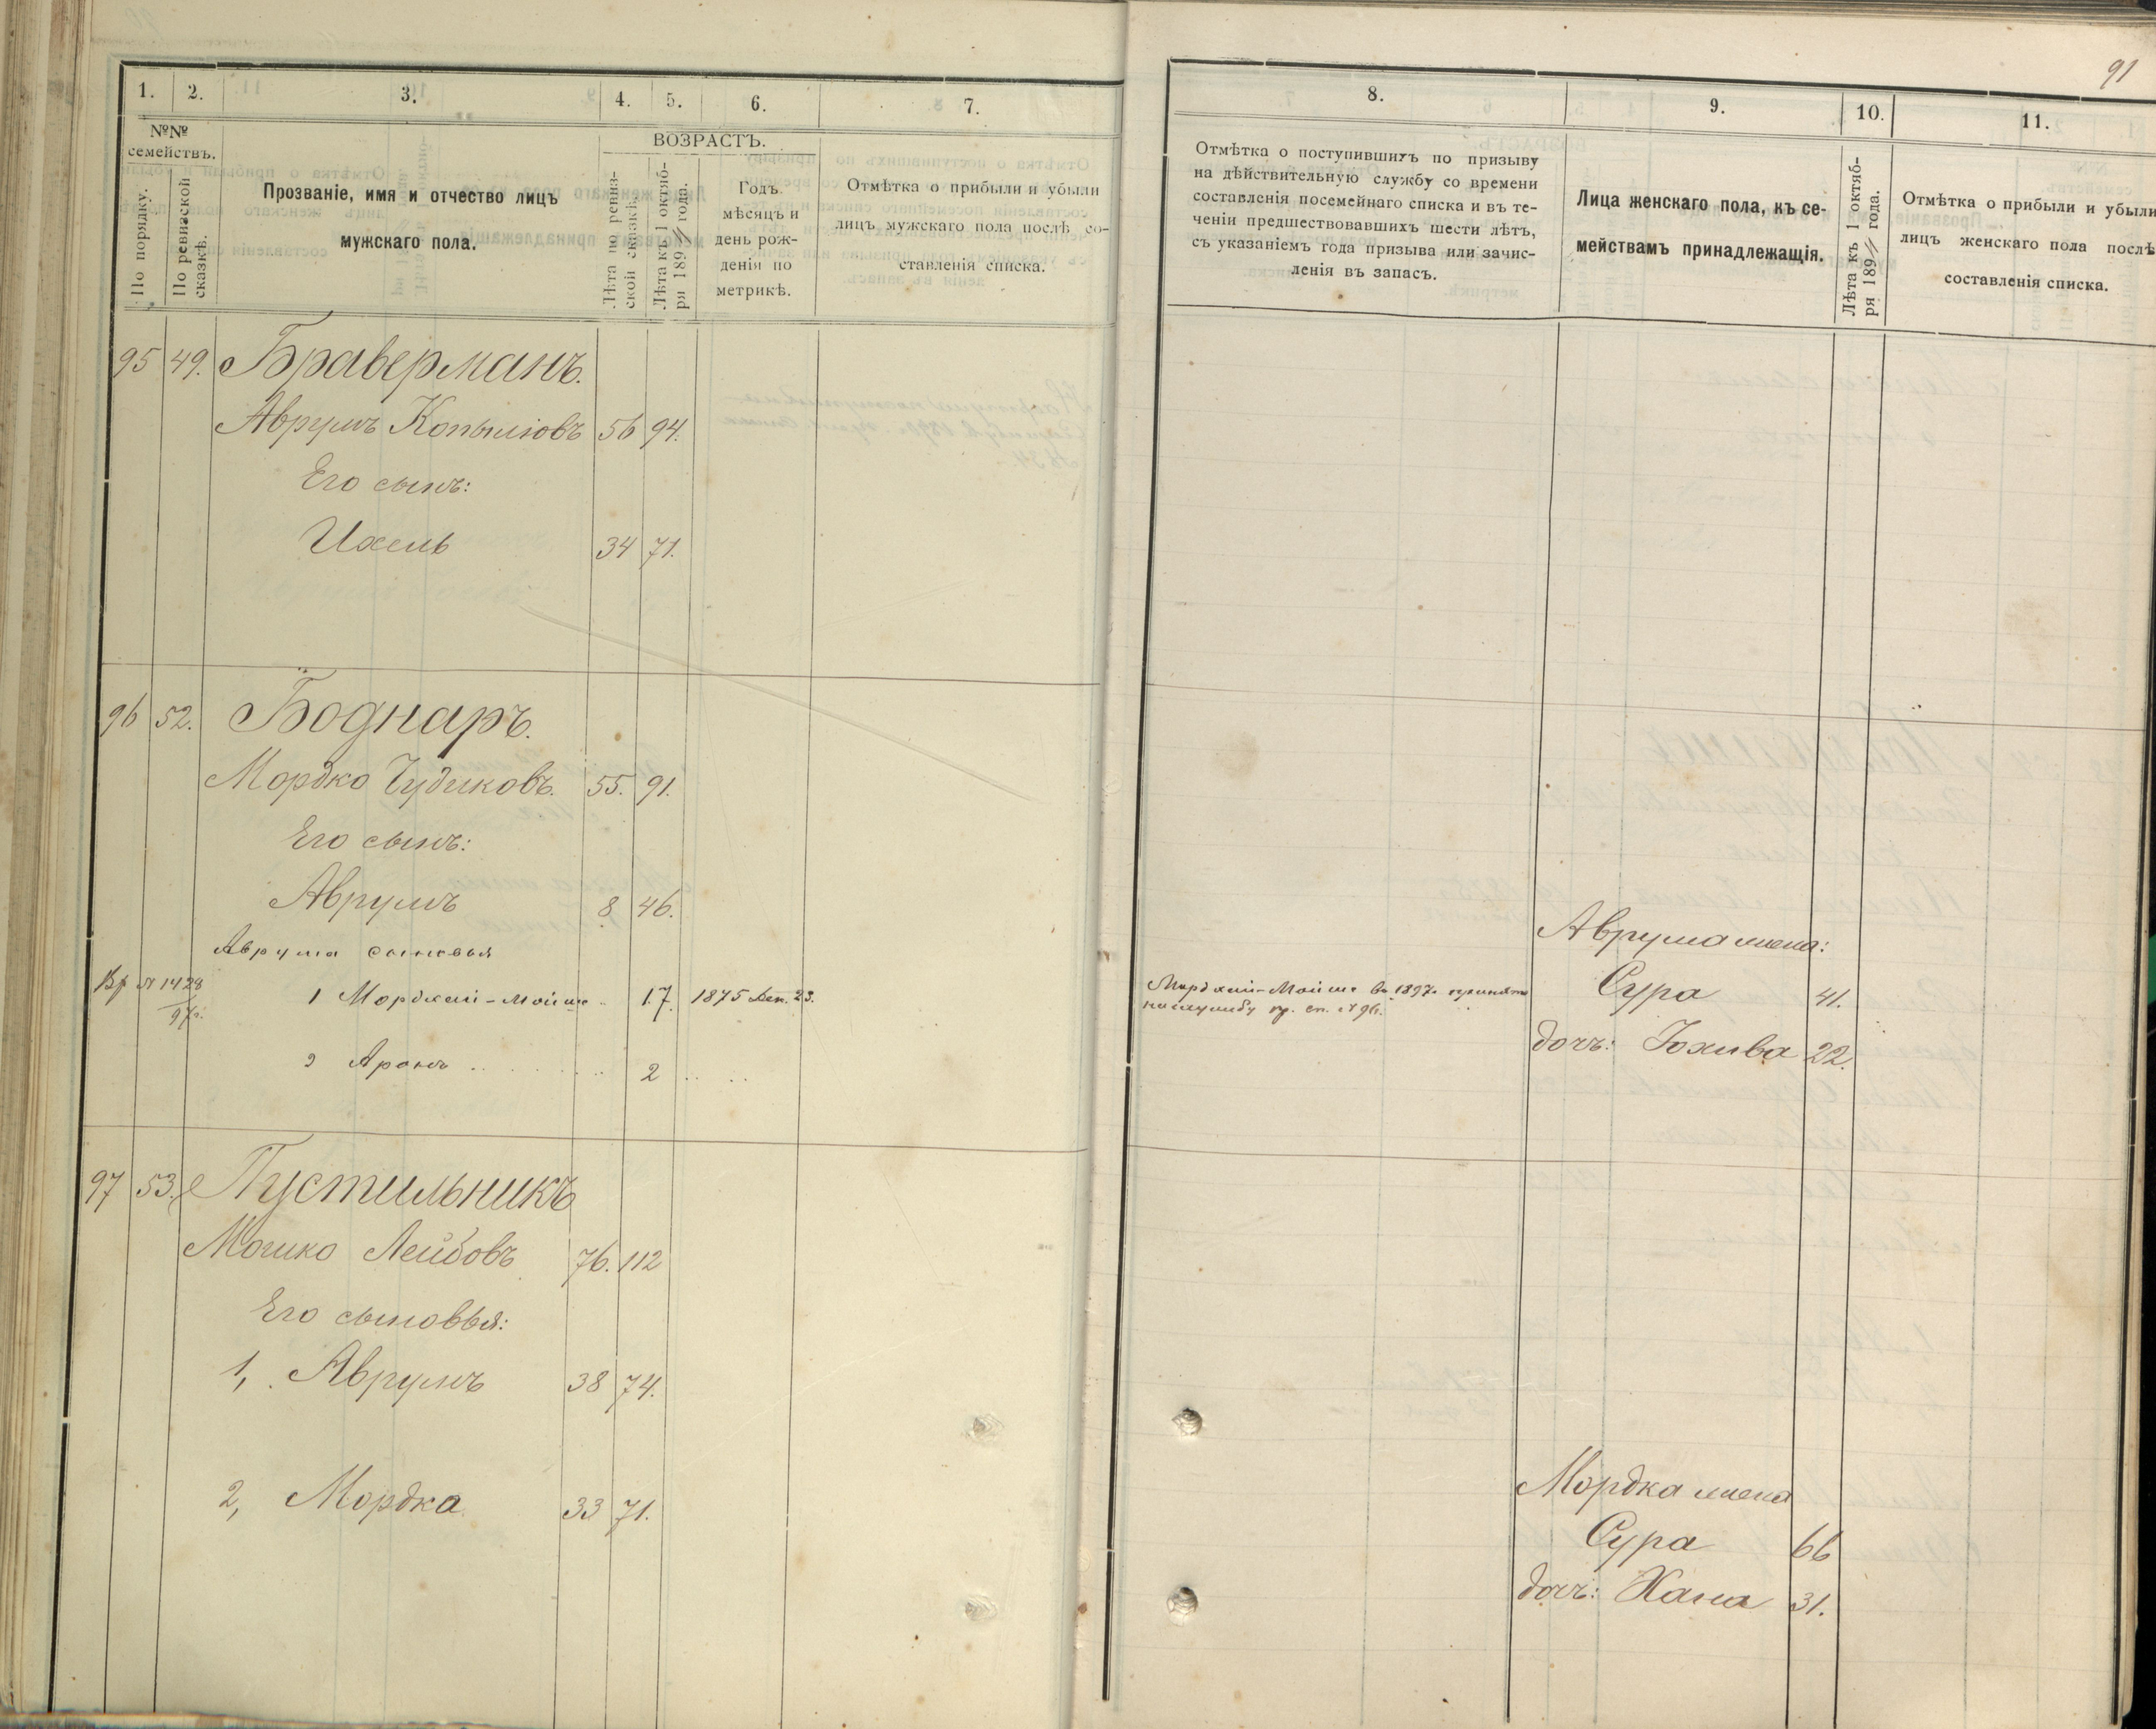 91
1. 2. 3. 4. 5. 6. 7.
№№ семействъ.
По порядку.
По ревизской сказкѣ.
Прозваніе, имя и отчество лицъ
мужскаго пола.
ВОЗРАСТЪ.
Лѣта по ревиз-
ской сказкѣ.
Лѣта къ 1 октяб-
ря 189 года.
Годъ,
мѣсяцъ и
день рож-
денія по
метрикѣ.
Отмѣтка о прибыли и убыли
лицъ мужскаго пола послѣ со-
ставленія списка.
95 49. Браверманъ.
Аврумъ Копылювъ 56 94.
Его сынъ:
Ихель 34 71.
96 52. Боднаръ.
Мордко Чудиковъ. 55. 91.
Его сынъ:
Аврумъ 8 46.
Аврума сыновья
№ 1428
97г.
1 Мордхай-Мойше 17 1875 23.
2 Аронъ 2
97 53. Пустильникъ
Мошко Лейбовъ 76. 112
Его сыновья:
1, Аврумъ 38 74.
2, Мордка 33 71.
8. 9. 10. 11.
Отмѣтка о поступившихъ по призыву
на дѣйствительную службу со времени
составленія посемейнаго списка и въ те-
ченіи предшествовавшихъ шести лѣтъ,
съ указаніемъ года призыва или зачис-
ленія въ запасъ.
Лица женскаго пола, къ се-
мействамъ принадлежащія.
Лѣта къ 1 октяб-
ря 189 года.
Отмѣтка о прибыли и убыли
лицъ женскаго пола послѣ
составленія списка.
Аврума жена:
Мордхай-Мойше въ 1897г. принятъ
на службу пр. сп. №96.
Сура 41.
дочь: Іохива 22.
Мордка жена
Сура 66
дочь: Хана 31.